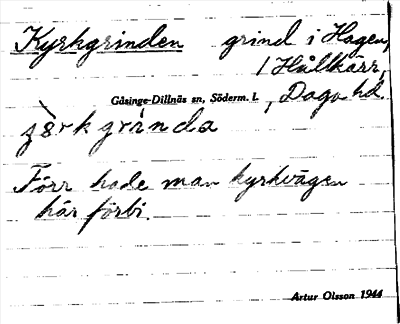 Kyrkgrinden grind i Hagen,
1 Hålkärr,
Gåsinge-Dillnäs sn, Söderm. l. , Daga hd.
Förr hade man kyrkvägen
här förbi.
Artur Olsson 1944